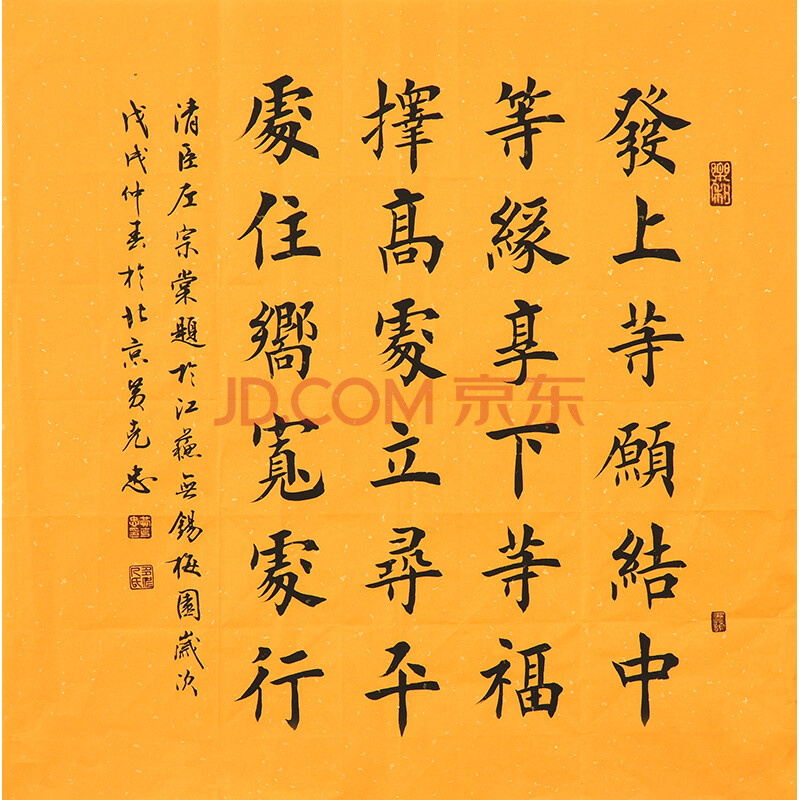 發上等願結中
等緣享下等福
擇高處立尋平
處住嚮寬處行
清臣左宗棠題於江蘇無錫梅園歲次
戊戌仲春於北京黄克忠
JD.COM 京东